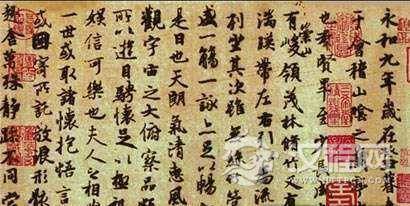 永和九年歲在
于會稽山陰之
也羣賢畢至
有崇山峻領茂林脩竹又有
湍暎帶左右引以為流
列坐其次雖無絲竹管
盛一觴一詠亦足以暢
是日也天朗氣清惠風
觀宇宙之大俯察品類
所以遊目騁懷足以極
娛信可樂也夫人之相與
一世或取諸懷抱悟言
或因寄所託放浪形骸
趣舍萬殊靜躁不同當